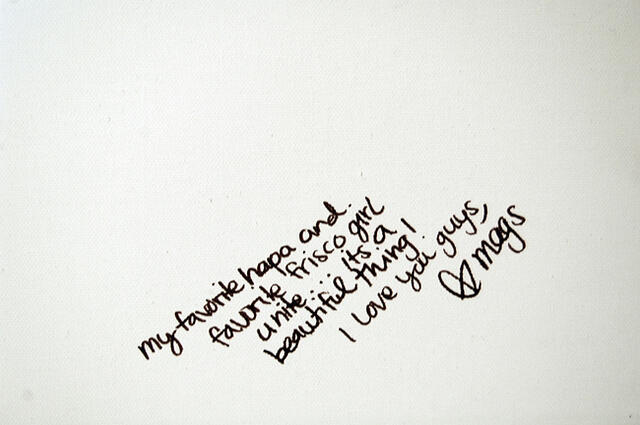 my favorite hapa and
favorite frisco girl
unite... its a
beautiful thing!
I love you guys,
♡ mags